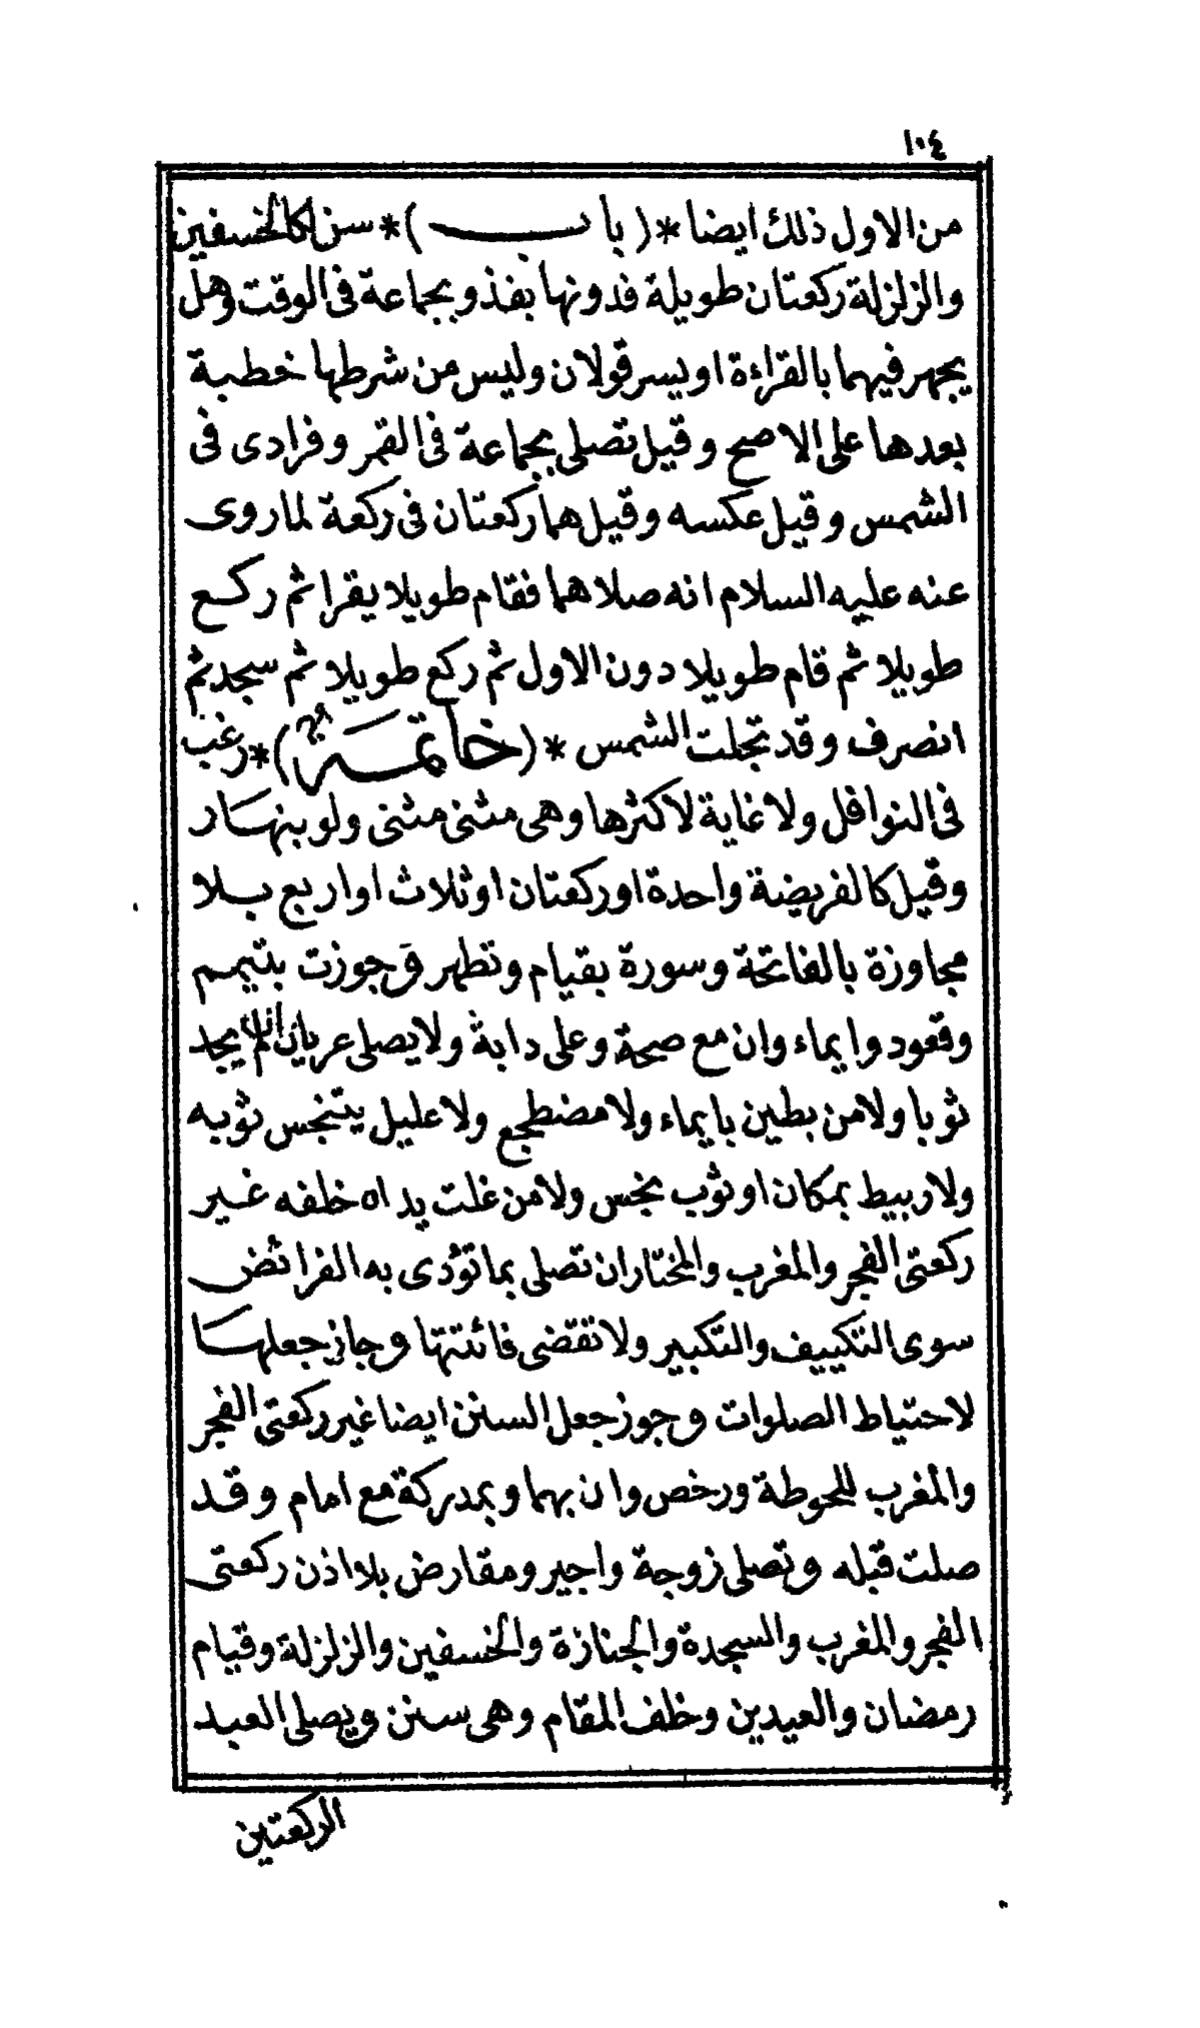 ١٠٤
من الاول ذلك ايضا *( باب )* سن لكالخسفين
والزلزلة ركعتان طويلة فدونها بفذ وبجماعة فى الوقت وهل
يجهر فيهما بالقراءة او يسر قولان وليس من شرطها خطبة
بعدها على الاصح وقيل تصلى بجماعة فى القمر وفرادى فى
الشمس وقيل عكسه وقيل هما ركعتان فى ركعة لما روى
عنه عليه السلام انه صلاهما فقام طويلا يقرا ثم ركع
طويلا ثم قام طويلا دون الاول ثم ركع طويلا ثم سجد ثم
انصرف وقد تجلت الشمس *( خاتمة )* رغب
فى النوافل ولا غاية لاكثرها وهى مثنى مثنى ولو بنهار
وقيل كالفريضة واحدة او ركعتان او ثلاث او اربع بلا
مجاوزة بالفاتحة وسورة بقيام وتطهر وجوزت بتيمم
وقعود وايماء وان مع صحة وعلى دابة ولا يصلى عريان ان لم يجد
ثوبا ولا من بطين بايماء ولا مضطجع ولا عليل يتنجس ثوبه
ولا ربيط بمكان او ثوب نجس ولا من غلت يداه خلفه غير
ركعتى الفجر والمغرب والمختار ان تصلى بما تؤدى به الفرائض
سوى التكييف والتكبير ولا تقضى فائتتها وجاز جعلها
لاحتياط الصلوات وجوز جعل السنن ايضا غير ركعتى الفجر
والمغرب للحوطة ورخص وان بهما وبمدركة مع امام وقد
صلت قبله وتصلى زوجة واجير ومقارض بلا اذن ركعتى
الفجر والمغرب والسجدة والجنازة والخسفين والزلزلة وقيام
رمضان والعيدين وخلف المقام وهى سنن ويصلى العبد
الركعتين